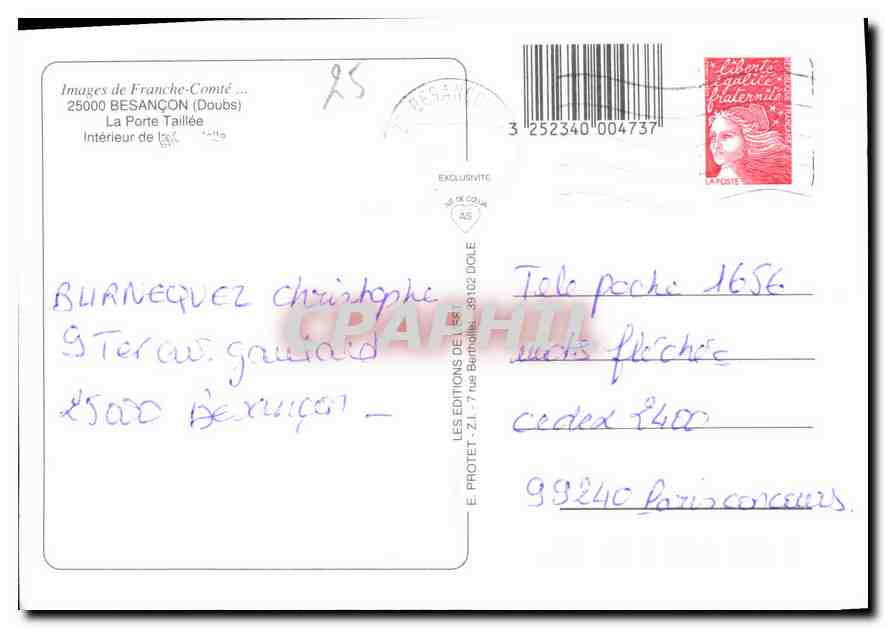 Images de Franche-Comté ...
25000 BESANÇON (Doubs)
La Porte Taillée
Intérieur de
25
BESANCO
3 252340 004737
liberté
égalité
fraternité
LA POSTE
EXCLUSIVITÉ
AS
LES EDITIONS DE L'EST
E. PROTET - Z.I. - 7 rue Berthollet 39102 DOLE
CPAPHIL
BURNEQUEZ Christophe
9 Ter av.
25000 Besançon
Tele poche 1656
mots fléchés
cedex 2400
99240 Paris concours.